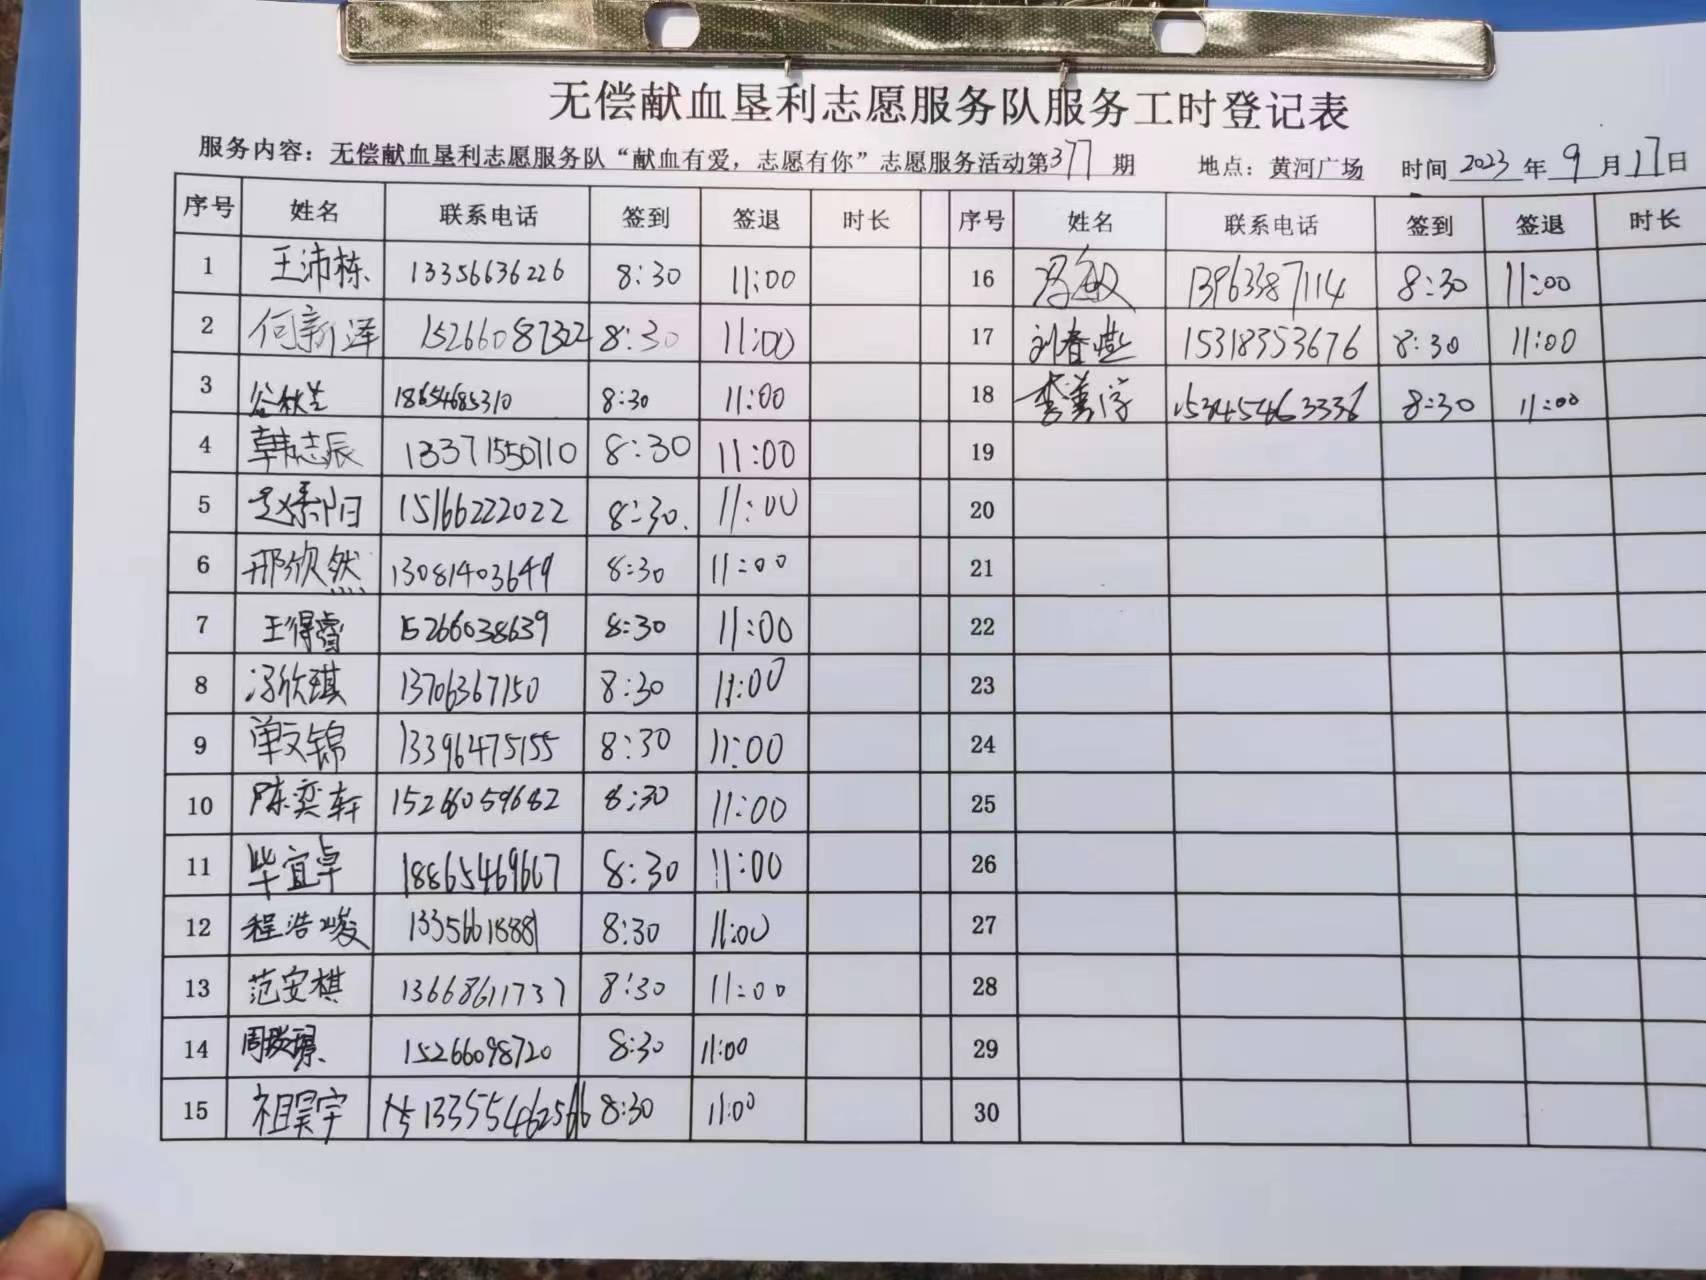 无偿献血垦利志愿服务队服务工时登记表
服务内容：无偿献血垦利志愿服务队“献血有爱，志愿有你”志愿服务活动第377期 地点：黄河广场 时间 2023 年 9 月 17 日
序号 姓名 联系电话 签到 签退 时长 序号 姓名 联系电话 签到 签退 时长
1 王沛栋 13356636226 8:30 11:00 16 冯敏 13963387114 8:30 11:00
2 何新泽 15266087322 8:30 11:00 17 刘春燕 15318353676 8:30 11:00
3 谷秋兰 18654685310 8:30 11:00 18 8:30 11:00
4 韩志辰 13371550710 8:30 11:00 19
5 15166222022 8:30 11:00 20
6 邢欣然 13081403649 8:30 11:00 21
7 王得睿 15266038639 8:30 11:00 22
8 冯欣琪 13706367150 8:30 11:00 23
9 单文锦 13396475155 8:30 11:00 24
10 陈奕轩 15266059682 8:30 11:00 25
11 毕宜卓 18865469667 8:30 11:00 26
12 程浩峻 13356618881 8:30 11:00 27
13 范安棋 13668611737 8:30 11:00 28
14 15266098720 8:30 11:00 29
15 祖昊宇 8:30 11:00 30